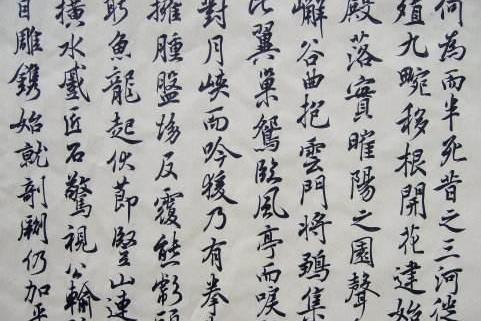 何為而半死昔之三河徙
殖九畹移根開花建始
殿落實睢陽之園聲
嶰谷曲抱雲門將鵶集
比翼巢鴛臨風亭而唳
對月峽而吟猨乃有拳
擁腫盤坳反覆熊彪顧
盼魚龍起伏節豎山連
橫水蹙匠石驚視公輸
目雕鐫始就剞劂仍加平